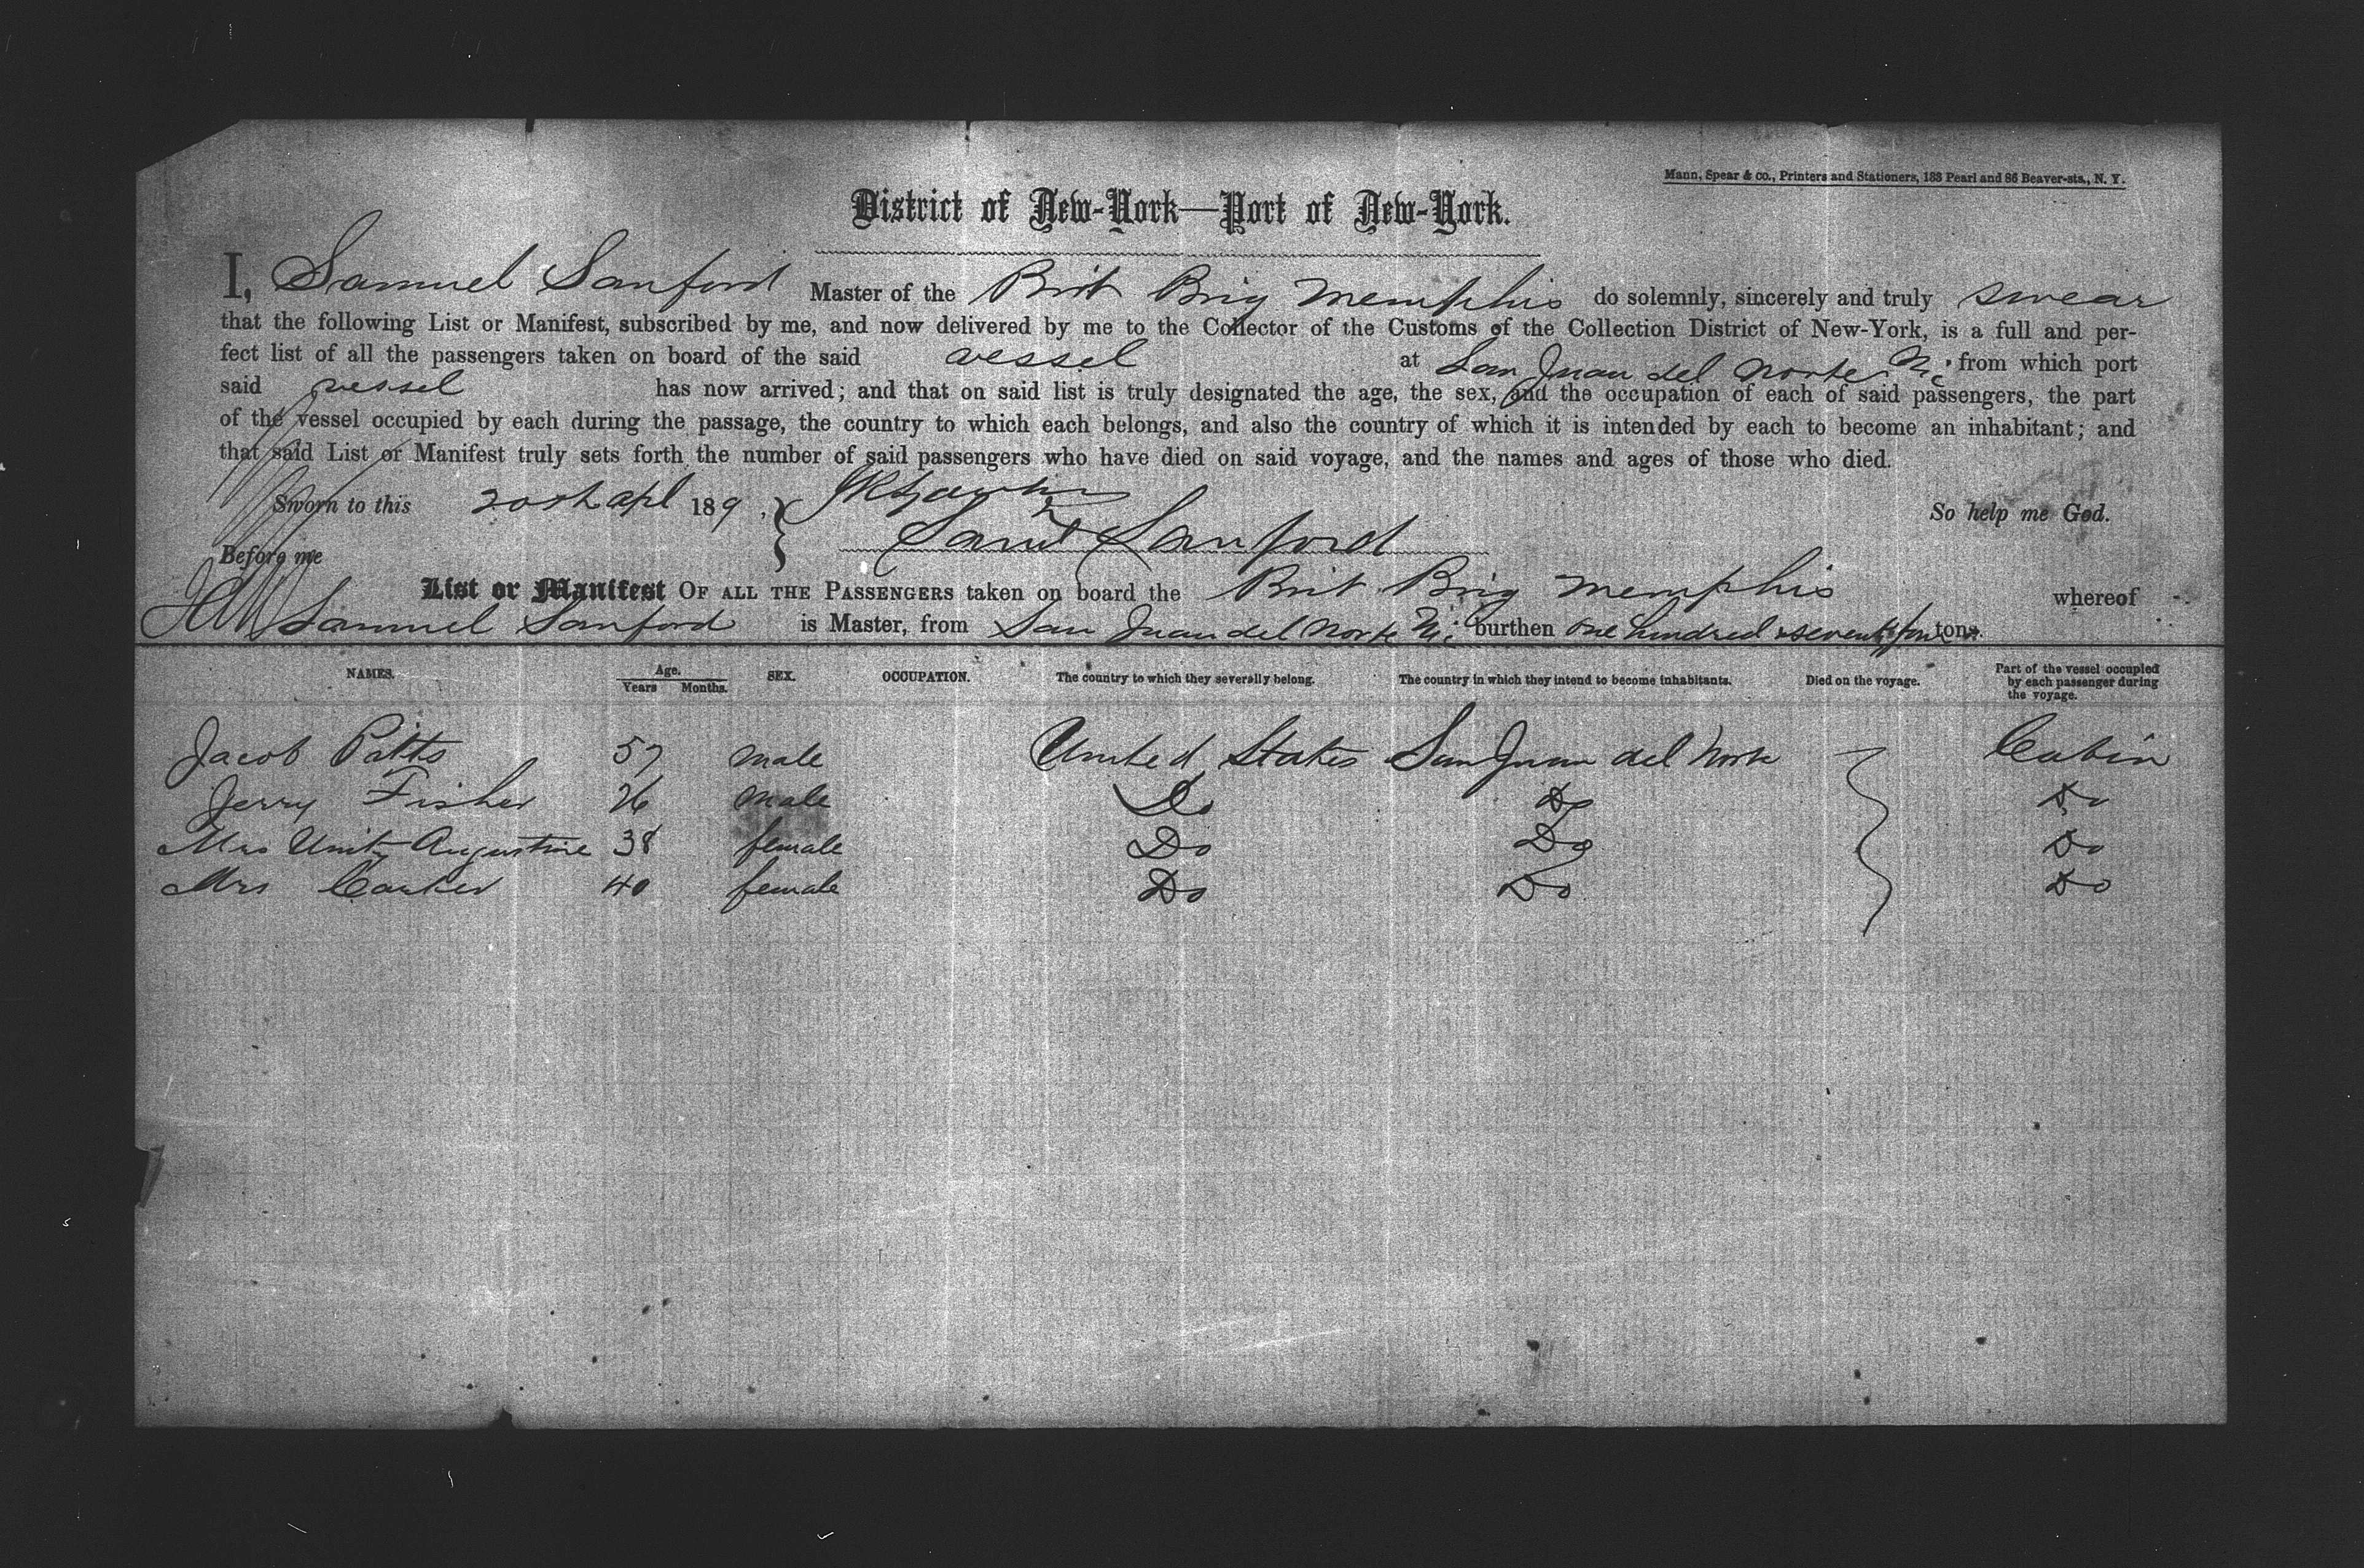 Mann, Spear & co., Printers and Stationers, 183 Pearl and 86 Beaver-sts., N. Y.
District of New-York—Port of New-York.
I, Samuel Sanford Master of the Brit Brig Memphis do solemnly, sincerely and truly swear
that the following List or Manifest, subscribed by me, and now delivered by me to the Collector of the Customs of the Collection District of New-York, is a full and per-
fect list of all the passengers taken on board of the said vessel at San Juan del Norte Nic from which port
said vessel has now arrived; and that on said list is truly designated the age, the sex, and the occupation of each of said passengers, the part
of the vessel occupied by each during the passage, the country to which each belongs, and also the country of which it is intended by each to become an inhabitant; and
that said List or Manifest truly sets forth the number of said passengers who have died on said voyage, and the names and ages of those who died.
Sworn to this 20th apl 189 . So help me God.
Before me Saml Sanford
List or Manifest OF ALL THE PASSENGERS taken on board the Brit Brig Memphis whereof
Samuel Sanford is Master, from San Juan del Norte Nic burthen One hundred & seventy four tons.
NAMES. Age. Years Months. SEX. OCCUPATION. The country to which they severally belong. The country in which they intend to become inhabitants. Died on the voyage. Part of the vessel occupied by each passenger during the voyage.
Jacob Potts 57 male United States San Juan del Norte Cabin
Jerry Fisher 26 male Do Do Do
Mrs Unity Augustine 38 female Do Do Do
Mrs 40 female Do Do Do